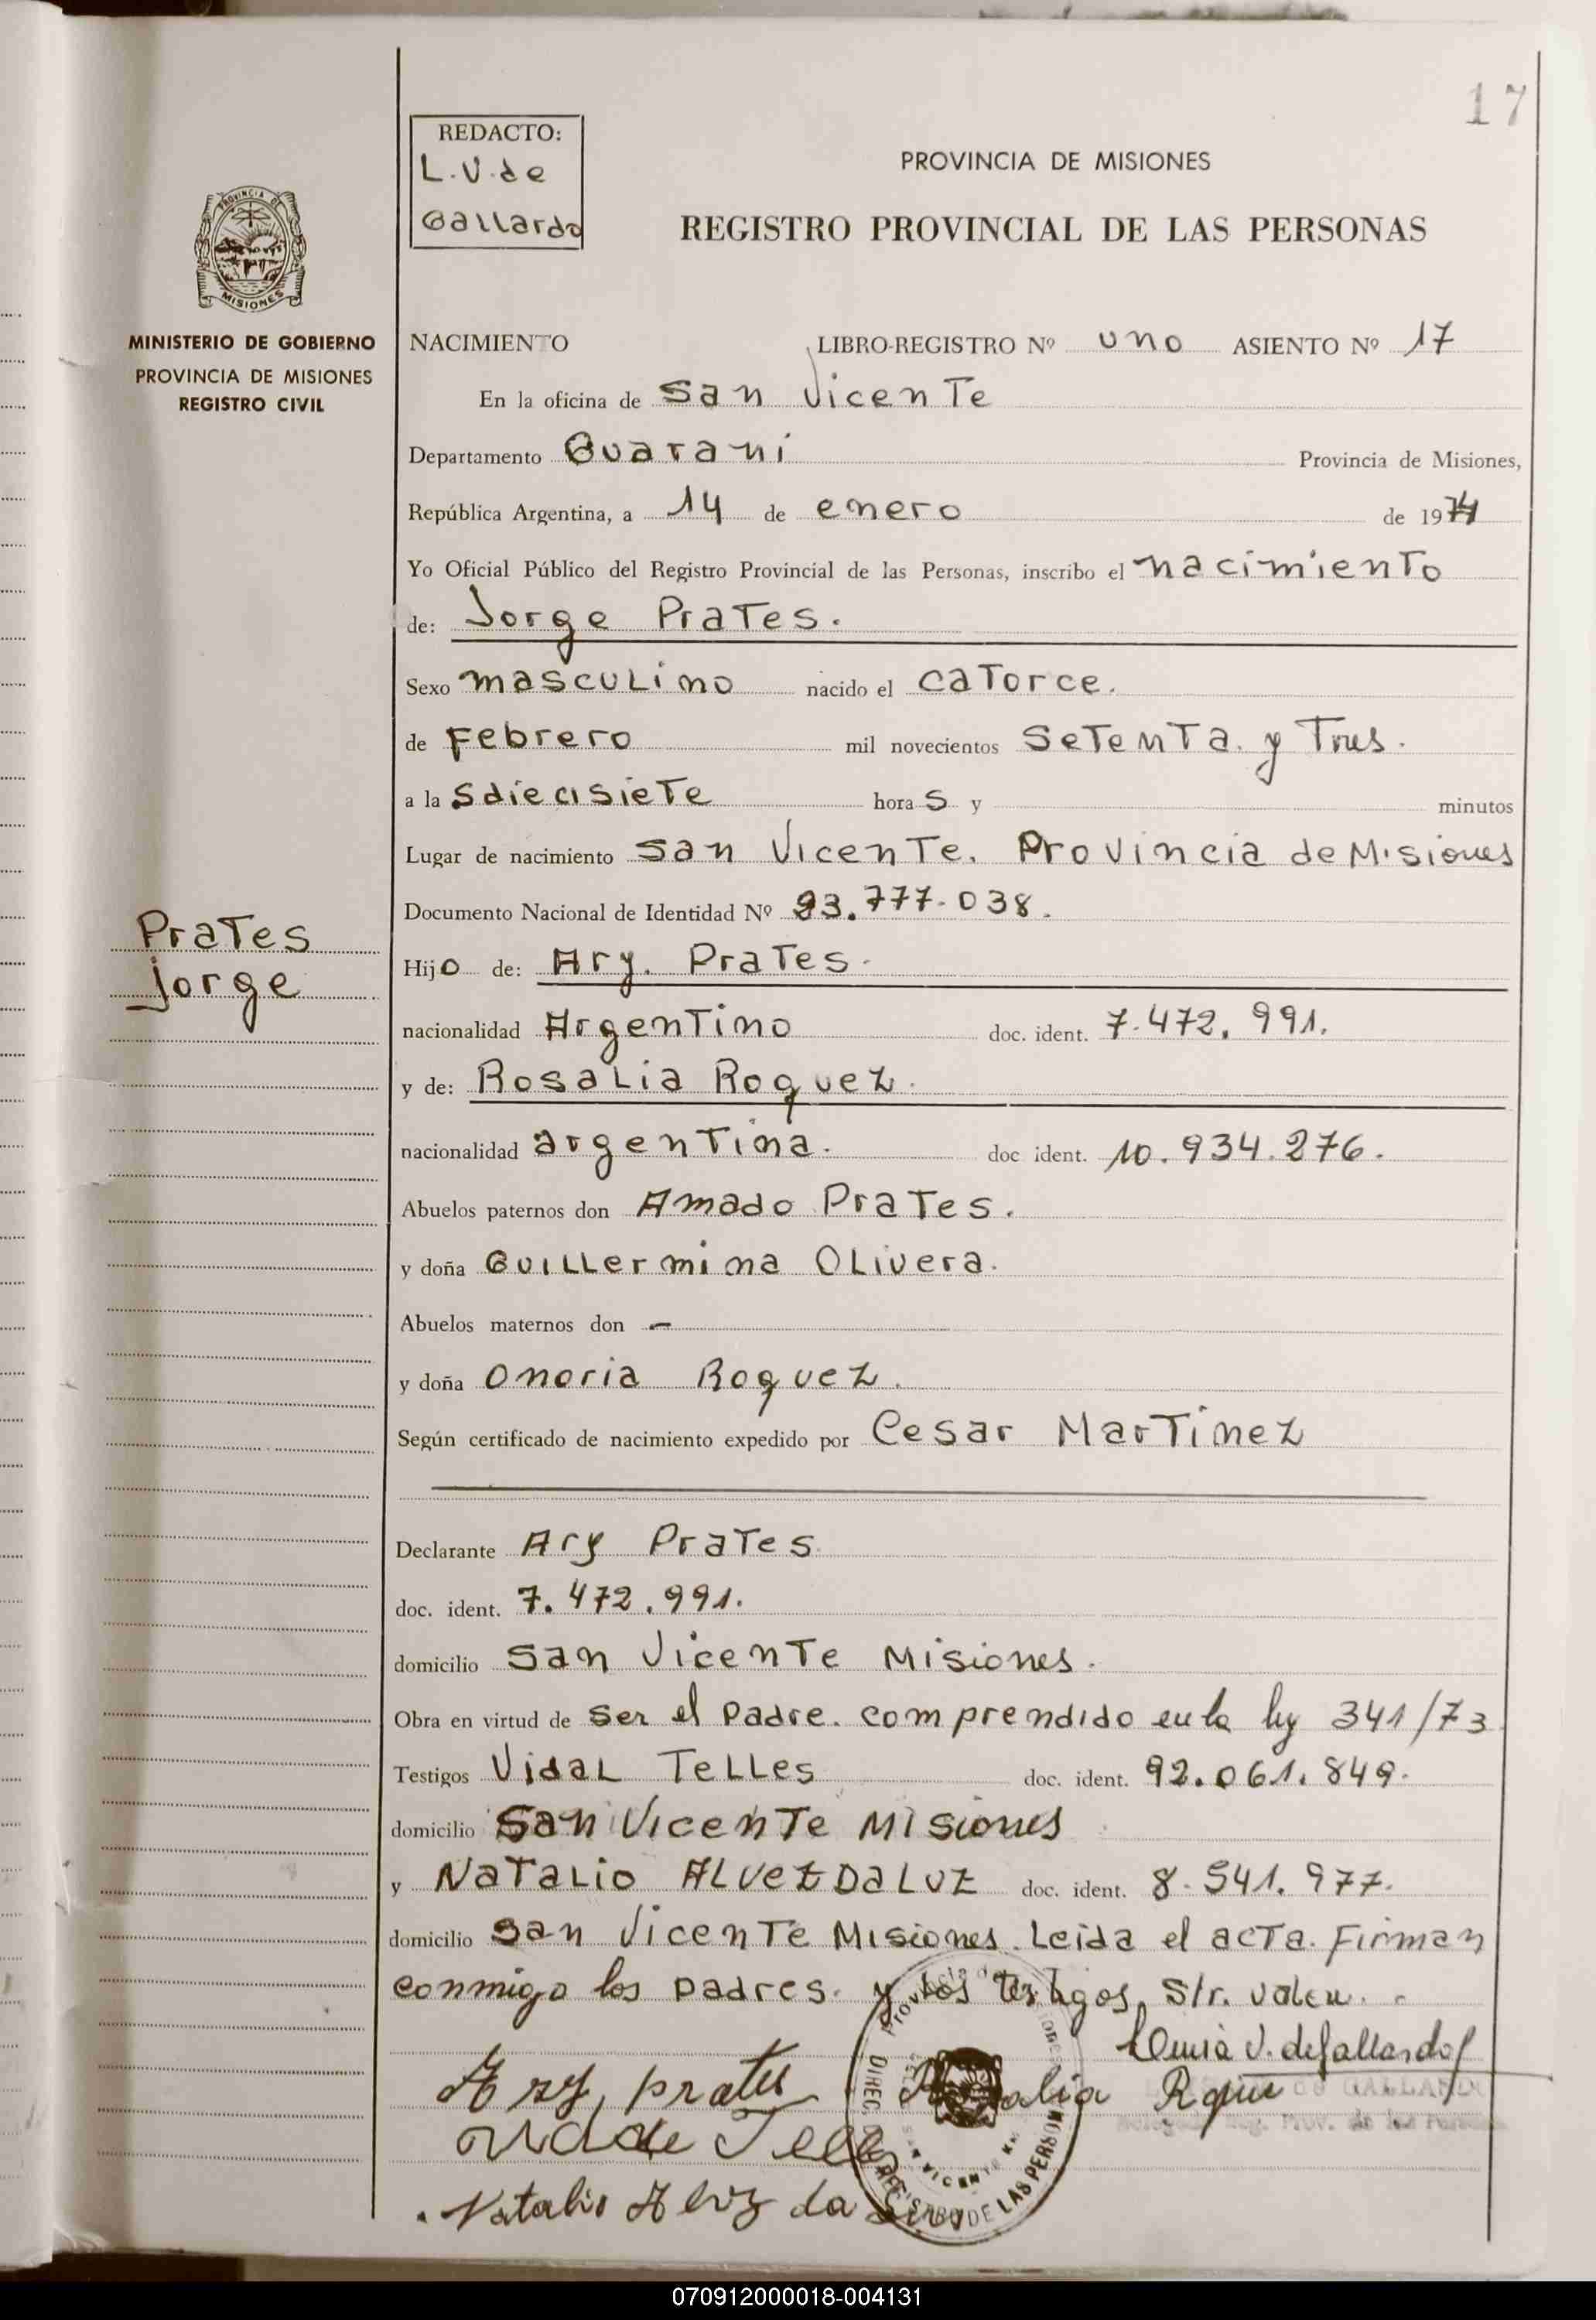 17
REDACTO:
L.V. de
Gallardo
PROVINCIA DE MISIONES
REGISTRO PROVINCIAL DE LAS PERSONAS
MISIONES
MINISTERIO DE GOBIERNO
PROVINCIA DE MISIONES
REGISTRO CIVIL
NACIMIENTO LIBRO-REGISTRO Nº uno ASIENTO Nº 17
En la oficina de San Vicente
Departamento Guarani Provincia de Misiones,
República Argentina, a 14 de enero de 1974
Yo Oficial Público del Registro Provincial de las Personas, inscribo el nacimiento
de: Jorge Prates.
Sexo masculino nacido el catorce.
de Febrero mil novecientos setenta y Tres.
a la sdiecisiete hora s y minutos
Lugar de nacimiento San Vicente. Provincia de Misiones
Documento Nacional de Identidad Nº 23.777.038.
Prates
Jorge
Hijo de: Ary. Prates.
nacionalidad Argentino doc. ident. 7.472.991.
y de: Rosalia Roquez.
nacionalidad argentina. doc ident. 10.934.276.
Abuelos paternos don Amado Prates.
y doña Guillermina Olivera.
Abuelos maternos don -
y doña Onoria Roquez.
Según certificado de nacimiento expedido por Cesar Martinez
Declarante Ary Prates
doc. ident. 7.472.991.
domicilio San Vicente Misiones.
Obra en virtud de ser el padre. comprendido en la ley 341/73
Testigos Vidal Telles doc. ident. 92.061.849.
domicilio San Vicente Misiones
y Natalio Alvez Da Luz doc. ident. 8.541.977.
domicilio San Vicente Misiones. Leida el acta. Firman
conmigo los padres. y los testigos, S/r. valen.
V. de Gallardo
Ary, prates
Natalio Alvez da
DE LAS PERSON
070912000018-004131